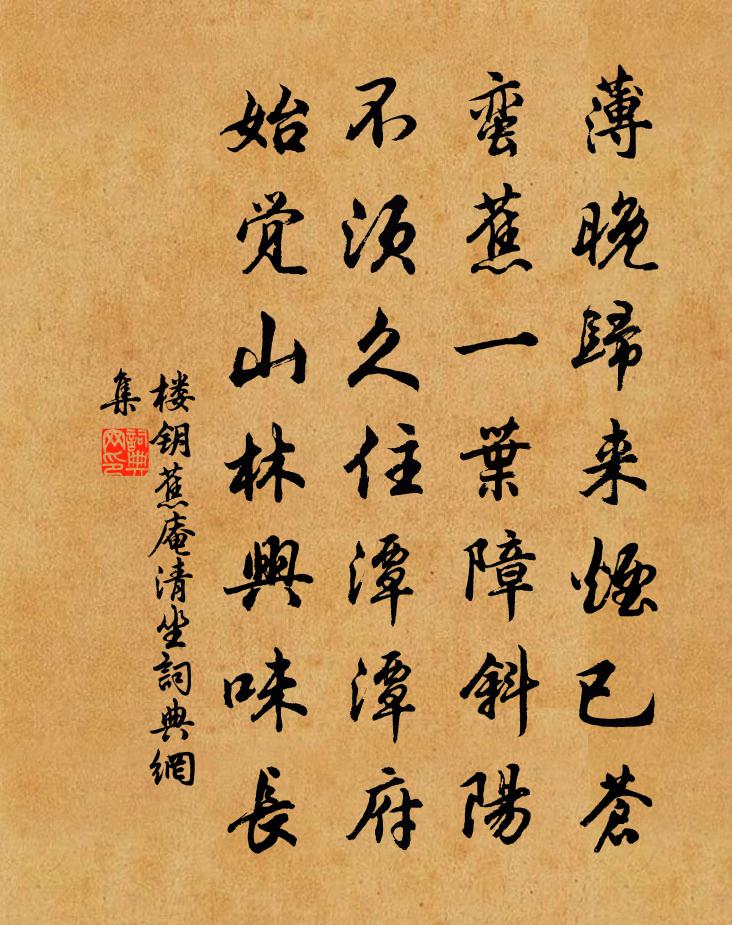 薄晚歸来煙已蒼
蛮蕉一葉障斜陽
不須久住潭潭府
始觉山林興味長
楼钥蕉庵清坐詞典網
集
詞典网印